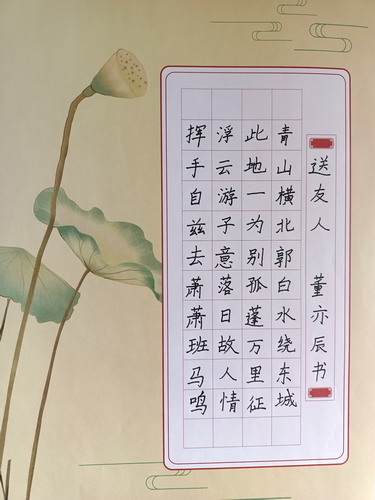 送友人 董亦辰书
青山横北郭白水绕东城
此地一为别孤蓬万里征
浮云游子意落日故人情
挥手自兹去萧萧班马鸣